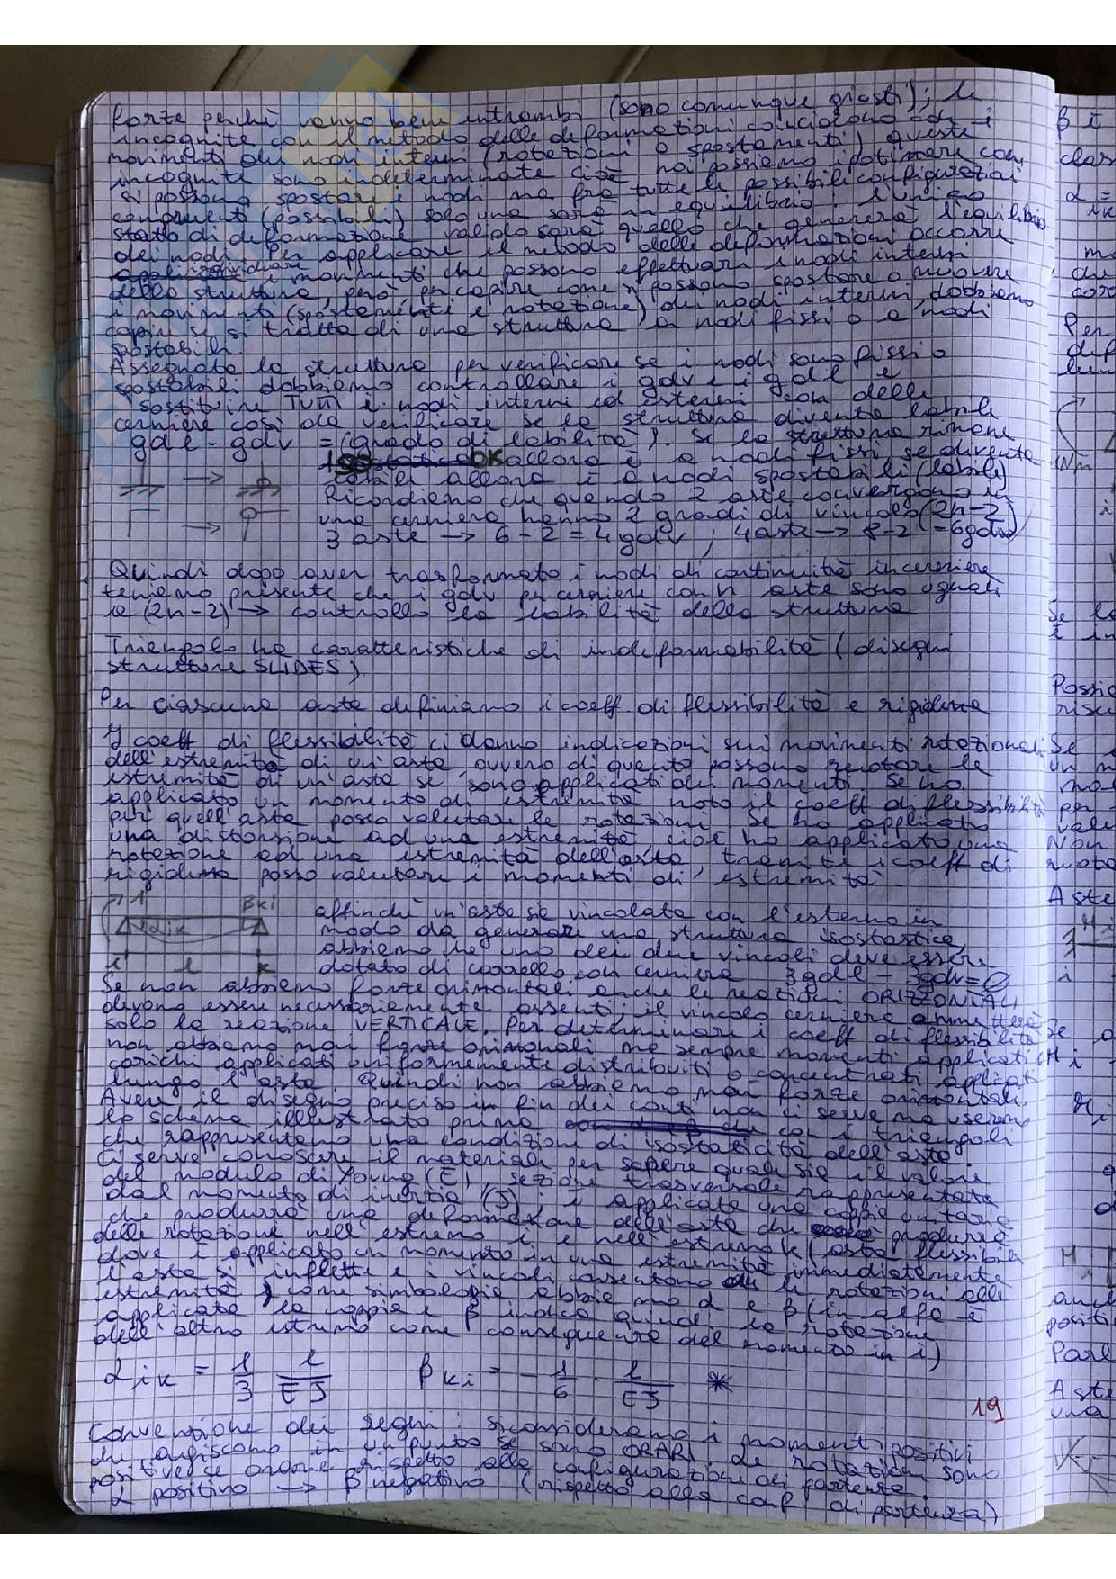 forze perché vanno bene entrambi (sono comunque giusti); le
incognite con il metodo delle deformazioni coincidono con i
movimenti dei nodi interni (rotazioni o spostamenti) queste
incognite sono indeterminate cioè noi possiamo ipotizzare come
si possono spostare i nodi ma fra tutte le possibili configurazioni
congruenti (possibili) solo una sarà in equilibrio. L'unico
stato di deformazione valido sarà quello che genererà l'equilibrio
dei nodi. Per applicare il metodo delle deformazioni occorre
individuare i movimenti che possono effettuare i nodi interni
della struttura, però per capire come si possono spostare o muovere
i movimenti (spostamenti e rotazione) dei nodi interni, dobbiamo
capire se si tratta di una struttura a nodi fissi o a nodi
spostabili.
Assegnata la struttura per verificare se i nodi sono fissi o
spostabili dobbiamo controllare i gdv e i gdl e
sostituire TUTTI i nodi interni ed esterni con delle
cerniere così da verificare se la struttura diventa labile
gdl - gdv = (grado di labilità). Se la struttura rimane
iso ok allora è a nodi fissi se diventa
labile allora è a nodi spostabili (labile)
Ricordiamo che quando 2 aste convergono in
una cerniera hanno 2 gradi di vincolo (2n-2)
3 aste → 6-2 = 4gdv ; 4 aste → 8-2 = 6gdv
Quindi dopo aver trasformato i nodi di continuità in cerniere
teniamo presente che i gdv per cerniere con n aste sono uguali
a (2n-2) → controllo la labilità della struttura
Triangolo ha caratteristiche di indeformabilità (disegni
strutture SLIDES)
Per ciascuna asta definiamo i coeff. di flessibilità e rigidezza
I coeff di flessibilità ci danno indicazioni sui movimenti rotazionali
dell'estremità di un'asta, ovvero di quanto possono ruotare le
estremità di un'asta se sono applicati dei momenti. Se ho
applicato un momento di estremità noto il coeff di flessibilità
per quell'asta posso valutare le rotazioni. Se ho applicato
una distorsione ad una estremità cioè ho applicato una
rotazione ad una estremità dell'asta tramite i coeff di
rigidezza posso valutare i momenti di estremità
1 βki
αik
i l k
affinché un'asta sia vincolata con l'esterno in
modo da generare una struttura isostatica,
abbiamo che uno dei due vincoli deve essere
dotato di carrello con cerniera 3gdl - 3gdv = 0
Se non abbiamo forze orizzontali anche le reazioni ORIZZONTALI
devono essere necessariamente assenti, il vincolo cerniera ammetterà
solo la reazione VERTICALE. Per determinare i coeff di flessibilità
non abbiamo mai forze orizzontali ma sempre momenti applicati o
carichi applicati uniformemente distribuiti o concentrati applicati
lungo l'asta. Quindi non abbiamo mai forze orizzontali.
Avere il disegno preciso in fin dei conti non ci serve ma useremo
lo schema illustrato prima con i triangoli
che rappresentano una condizione di isostaticità dell'asta.
Ci serve conoscere il materiale per sapere quale sia il valore
del modulo di Young (E), sezione trasversale rappresentata
dal momento di inerzia (J). è applicata una coppia
che produrrà una deformazione dell'asta che produrrà
delle rotazione nell'estremo i e nell'estremo k (asta flessibile
dove è applicato un momento in una estremità immediatamente
l'asta si inflette e i vincoli consentono le rotazioni alle
estremità), come simbologia abbiamo α e β (in alfa è
applicata la coppia e β indica quindi la rotazione
dell'altro estremo come conseguenza del momento in i)
αik = 1/3 l/EJ βki = - 1/6 l/EJ *
19
Convenzione dei segni: si considerano i momenti positivi
che agiscono in un punto se sono ORARI. Le rotazioni sono
positive se orarie rispetto alla configurazione di partenza.
α positivo → β negativo (rispetto alla conf di partenza)